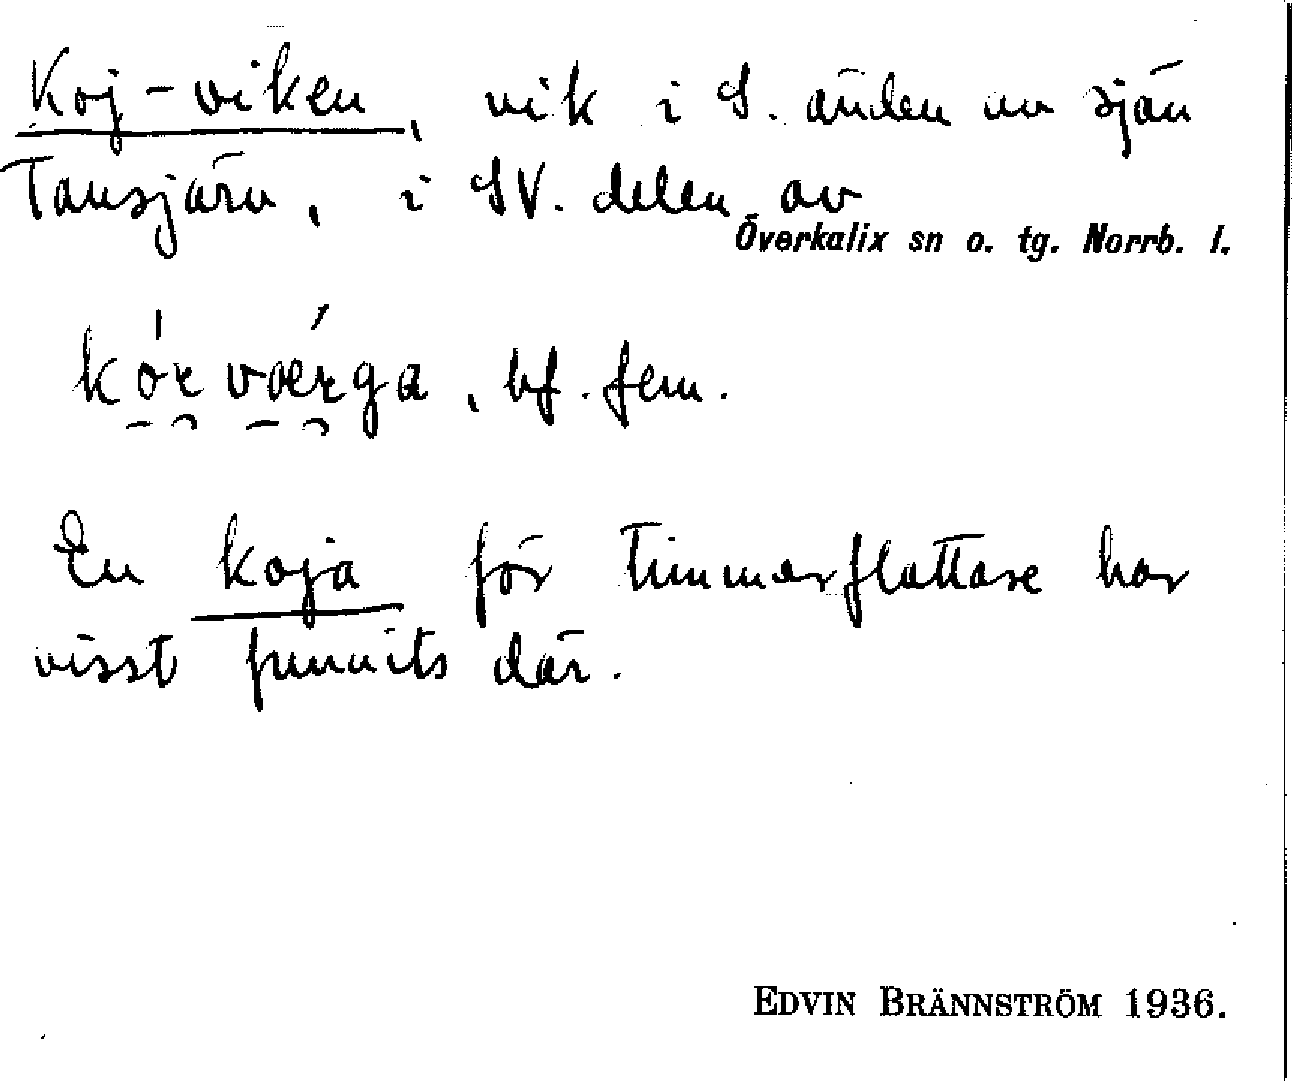 Koj-viken, vik i S. änden av sjön
Tansjärv, i SV. delen av
Överkalix sn o. tg. Norrb. l.
bf. fem.
En koja för timmerflottare har
visst funnits där.
EDVIN BRÄNNSTRÖM 1936.